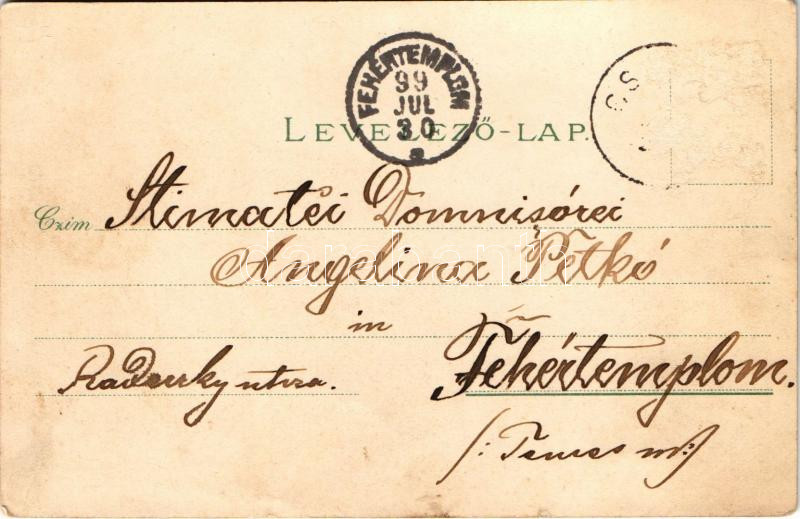 FEHÉRTEMPLOM
99
JUL
30
CS
LEVELEZŐ-LAP.
Czim Stimatei Domnisórei
Angelina Petkó
in
Fehértemplom.
Radeczky utcza.
/: Temes m :/